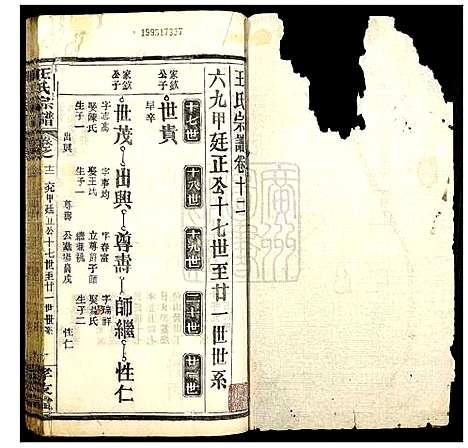 199517337
王氏宗譜卷十二
六九甲廷正公十七世至廿一世世系
十七世
十八世
十九世
二十世
廿一世
家欽公子
世貴
早卒
家欽公子
世茂
字志高
娶陳氏
生子一
出興
出興
字事均
娶王氏
生子一
尊壽
尊壽
字春富
立尊爵子師繼祧
師繼
字瑞祥
娶氏
生子二
性仁
性仁
王氏宗譜
卷之十二
六九甲廷正公十七世至廿一世世系
孝友堂